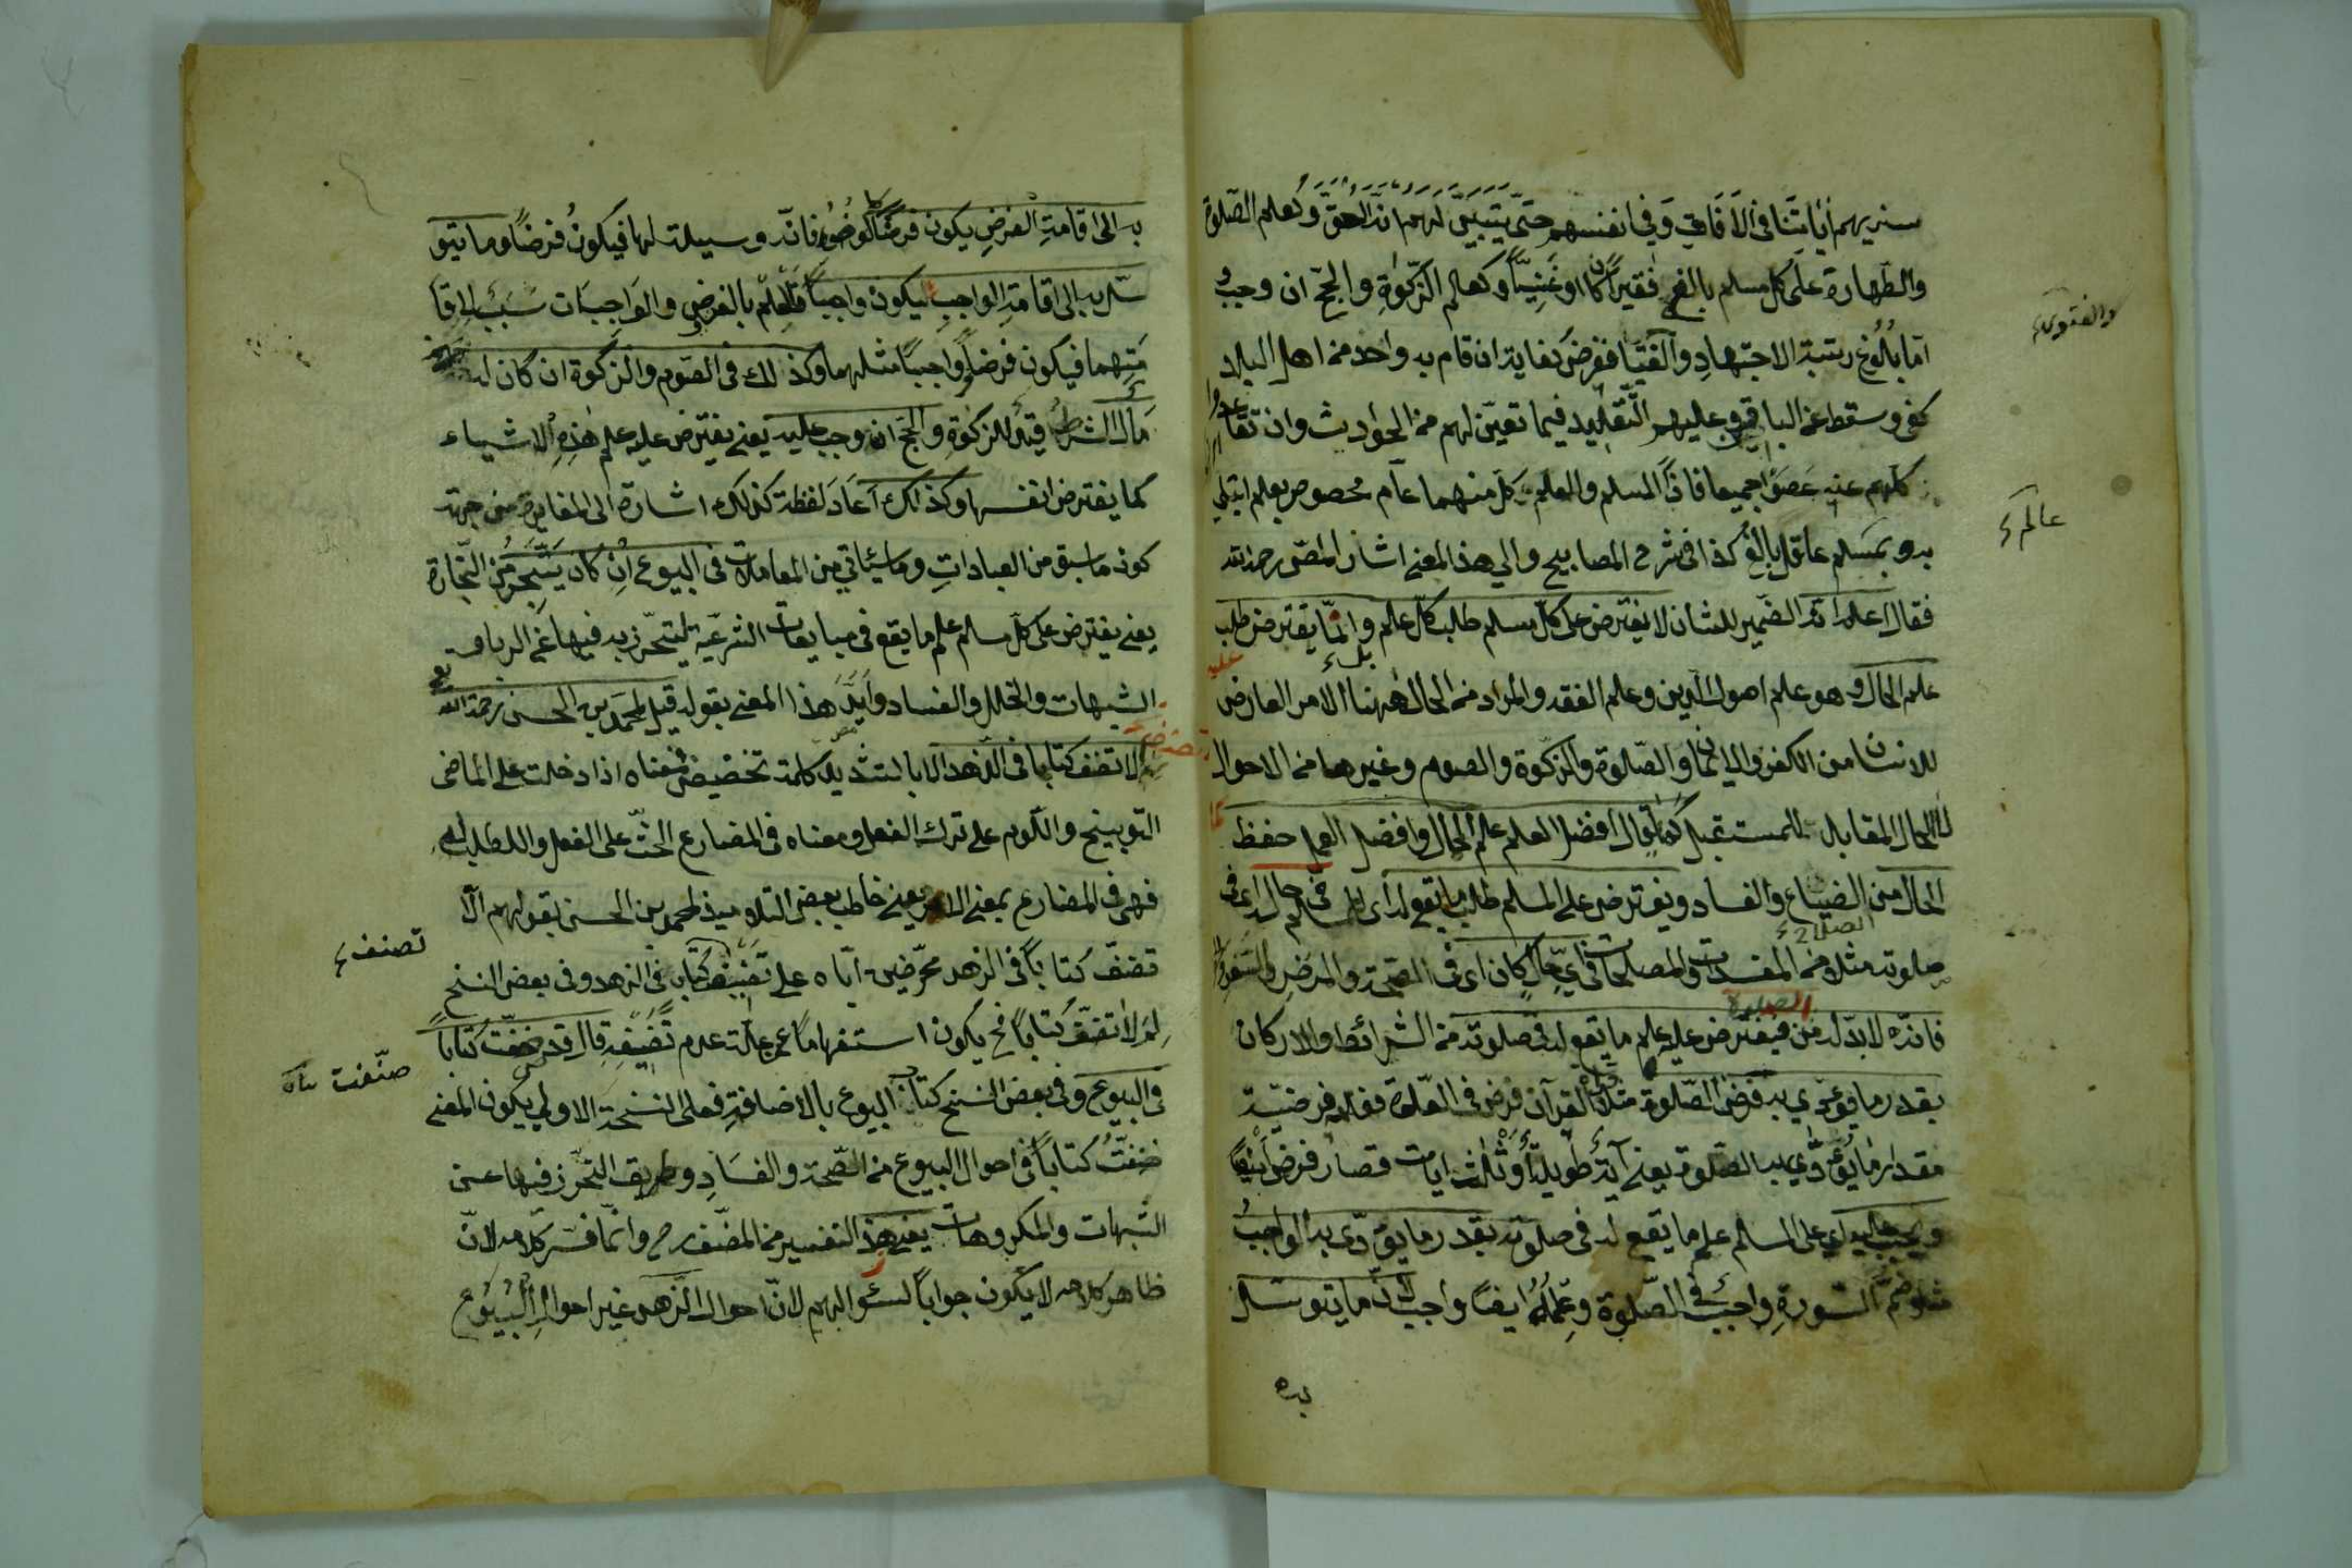 سنريهم اٰياتنا فى الآفاق وفى انفسهم حتى يتبين لهم انه الحق وكعلم الصلوة
والطهارة على كل مسلم بالغ فقيرا كان او غنيا وكعلم الزكوة والحج ان وجب
والفتوى
اما بلوغ رتبة الاجتهاد والفتيا ففرض كفاية ان قام به واحد من اهل البلاد
كفى وسقط عن الباقى وعليهم التقليد فيما تعين لهم من الحوادث وان تقاعدوا
كلهم عنه عصوا جميعا فاذا المسلم والعلم كل منهما عام مخصوص بعلم ابتلى
عالم
به وبمسلم عاقل بالغ كذا فى شرح المصابيح والى هذا المعنى اشار المص رحمه الله
فقال اعلم انه الضمير للشان لا يفترض على كل مسلم طلب كل علم وانما يفترض طلب
عليه
بل
علم الحال وهو علم اصول الدين وعلم الفقه والمراد من الحال ههنا الامر العارض
للانسان من الكفر والايمان والصلوة والزكوة والصوم وغيرها من الاحوال
لا الحال المقابل للمستقبل كما يقال افضل العلم علم الحال وافضل العمل حفظ
الحال من الضياع والفساد ويفترض على المسلم طلب ما يقع له اى للمسلم فى حاله اى فى
الصلاة
صلوته مثلا من المفسدات والمصلحات فى اى حال كان اى فى الصحة والمرض والسفر
الصلوة
فانه لا بد له من فيفترض عليه علم ما يقع له فى صلوته من الشرائط والاركان
بقدر ما يؤدى به فرض الصلوة مثلا قراة القرآن فرض فى الصلوة فعلم فرضية
مقدار ما يؤدى به الصلوة يعنى آية طويلة او ثلاث ايات قصار فرض ايضا
ويجب عليه اى على المسلم علم ما يقع له فى صلوته بقدر ما يؤدى به الواجب
مثلا ضم السورة واجب فى الصلوة وعلمه ايضا واجب لان ما يتوسل
به
به الى اقامة الفرض يكون فرضا كالوضوء فانه وسيلة لها فيكون فرضا وما يتو
سل به الى اقامة الواجب يكون واجبا فالعلم بالفرض والواجبات سبب لاقا
متهما فيكون فرضا وواجبا مثلهما وكذلك فى الصوم والزكوة ان كان له
مال الشرط قيد للزكوة والحج ان وجب عليه يعنى يفترض عليه علم هذه الاشياء
كما يفترض انفسها وكذلك اعاد لفظة كذلك اشارة الى المغايرة من جهة
كون ما سبق من العبادات وما سيأتى من المعاملات فى البيوع ان كان يتجر من التجارة
يعنى يفترض على كل مسلم علم ما يقع فى مبايعات الشرعية ليتحرز به فيها عن الربا و
الشبهات والخلل والفساد وايد هذا المعنى بقوله قيل لمحمد بن الحسن رحمه الله
الا تصنف كتابا فى الزهد الا بالتشديد كلمة تحضيض فمعناه اذا دخلت على الماضى
التوبيخ واللوم على ترك الفعل ومعناه فى المضارع الحث على الفعل والطلب له
فهى فى المضارع بمعنى الامر يعنى خاطب بعض التلاميذ لمحمد بن الحسن بقولهم الا
تصنف
تصنف كتابا فى الزهد محرضين اياه على تصنيف كتاب فى الزهد وفى بعض النسخ
لم لا تصنف كتابا فح يكون استفهاما عن علة عدم تصنيفه قال قد صنفت كتابا
صنفت
فى البيوع وفى بعض النسخ كتاب البيوع بالاضافة فعلى النسخة الاولى يكون المعنى
صنفت كتابا فى احوال البيوع من الصحة والفساد وطريق التحرز فيها عن
الشبهات والمكروهات يعنى هذا التفسير من المصنف رح وانما فسر كلامه لان
ظاهر كلامه لا يكون جوابا لسئوالهم لان احوال الزهد غير احوال البيوع